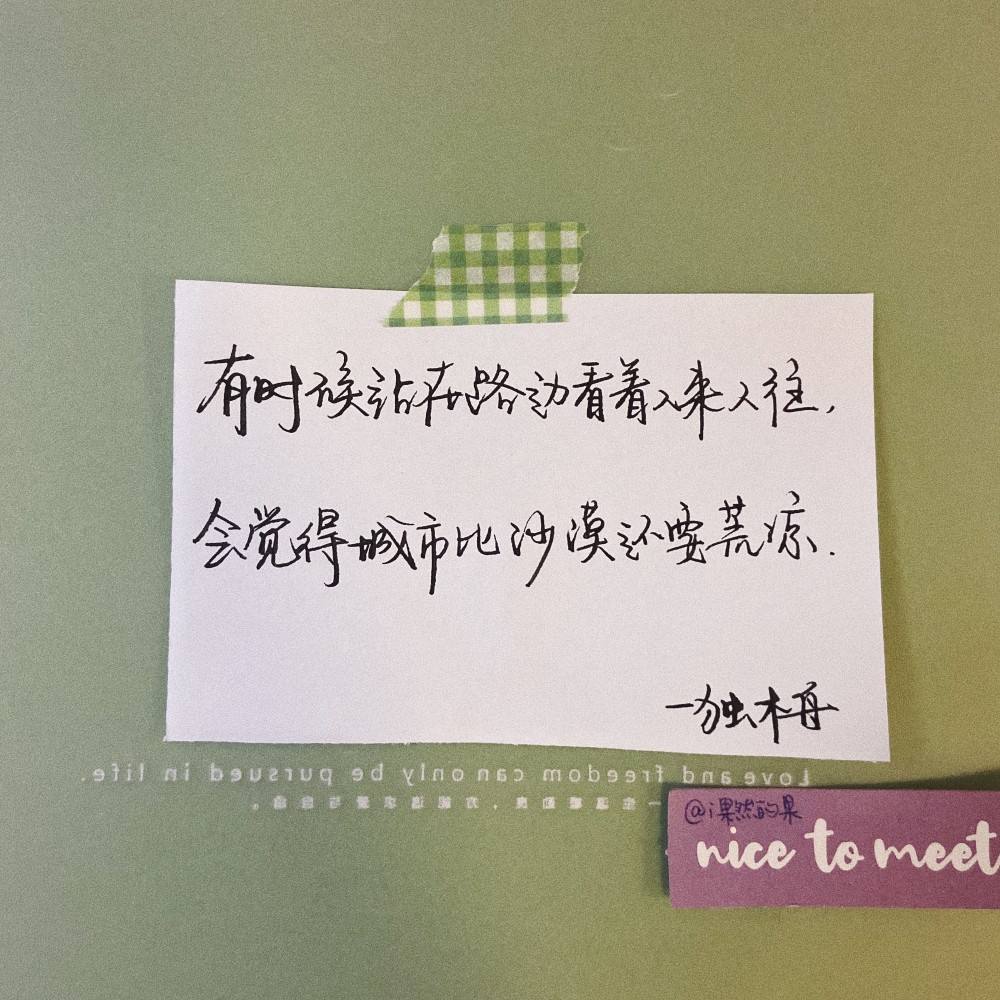 有时候站在路边看着人来人往，
会觉得城市比沙漠还要荒凉.
一独木舟
Love and freedom can only be pursued in life.
@i果然的果
nice to meet